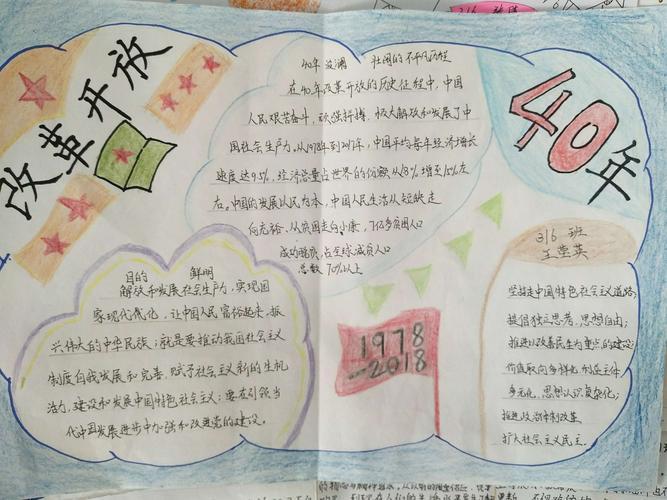 改革开放
40年
40年波澜 壮阔的不平凡历程
在40年改革开放的历史征程中，中国
人民艰苦奋斗，顽强拼搏，极大解放和发展了中
国社会生产力，从1978年到2017年，中国平均每年经济增长
速度达9.5%，经济总量占世界的份额从1.8%增至15%左
右。中国的发展以民为本，中国人民生活从短缺走
向充裕，从贫困走向小康，7亿多贫困人口
成功脱贫，占全球减贫人口
总数70%以上
316 班
王莹英
坚持走中国特色社会主义道路；
提倡独立思考，思想自由；
推进以改善民生为重点的建设；
价值取向多样化，利益主体
多元化，思想认识复杂化；
推进政治体制改革
扩大社会主义民主。
目的 鲜明
解放和发展社会生产力，实现国
家现代化，让中国人民富裕起来，振
兴伟大的中华民族；就是要推动我国社会主义
制度自我发展和完善，赋予社会主义新的生机
活力，建设和发展中国特色社会主义；要在引领当
代中国发展进步中加强和改进党的建设。
1978
-2018